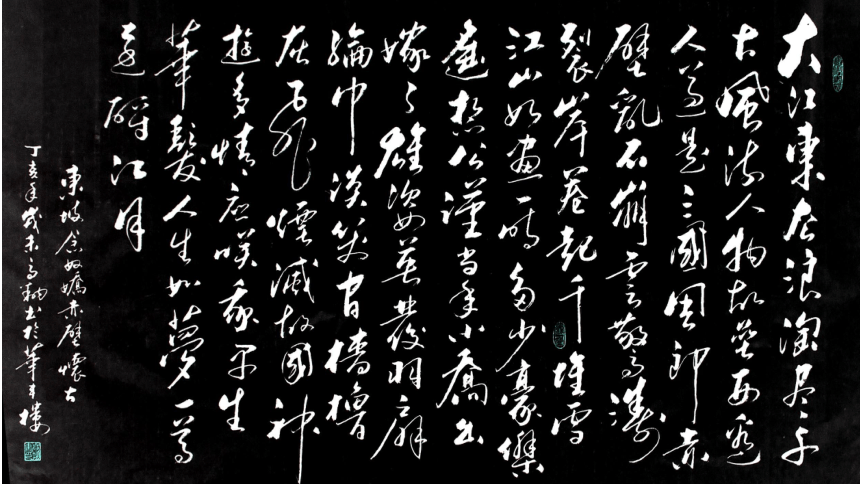 大江東去浪淘尽千
古風流人物故壘西邊
人道是三國周郎赤
壁亂石崩雲驚濤
裂岸卷起千堆雪
江山如畫一時多少豪傑
遙想公瑾當年小喬出
嫁了雄姿英發羽扇
綸巾談笑間檣櫓
灰飛煙滅故國神
遊多情應笑我早生
華髮人生如夢一尊
還酹江月
東坡念奴嬌赤壁懷古
丁亥年歲末書於華樓